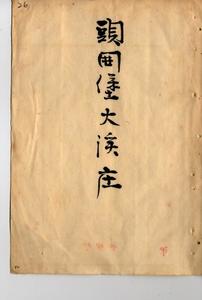 26
頭囲堡大溪庄